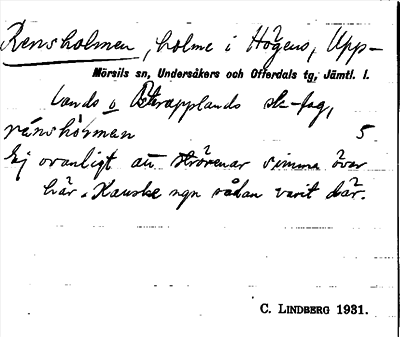 Rensholmen, holme i Högens, Upp-
Mörsils sn, Undersåkers och Offerdals tg, Jämtl. l.
lands o Österupplands sk-lag,
rénshòrman 5
Ej ovanligt att strörenar simma över
här. Kanske ngn sådan varit där.
C. LINDBERG 1931.